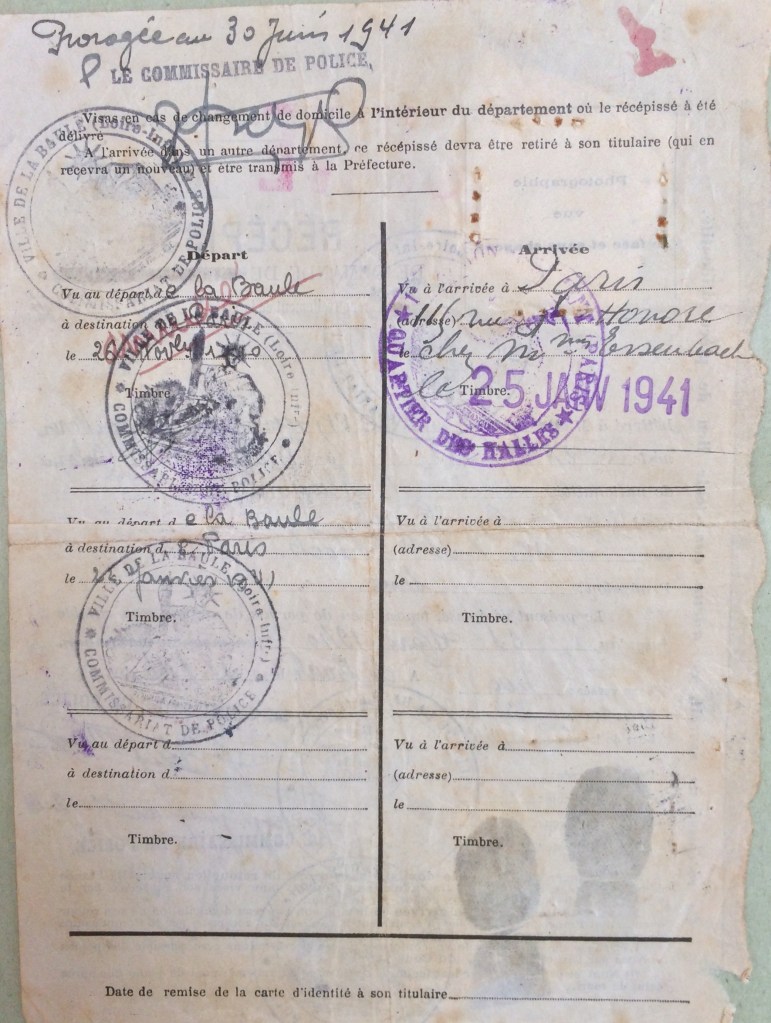 Prorogée au 30 Juin 1941
LE COMMISSAIRE DE POLICE,
Visas en cas de changement de domicile à l'intérieur du département où le récépissé à été
délivré
A l'arrivée dans un autre département, ce récépissé devra être retiré à son titulaire (qui en
recevra un nouveau) et être transmis à la Préfecture.
VILLE DE LA BAULE (Loire-Infre)
COMMISSARIAT DE POLICE
Départ
Vu au départ de la Baule
à destination d
le 26 Novbre 1940
Timbre.
VILLE DE LA BAULE (Loire-Infre)
COMMISSARIAT DE POLICE
Vu au départ de la Baule
à destination de Paris
le Janvier 1941
VILLE DE LA BAULE (Loire-Infre)
COMMISSARIAT DE POLICE
Timbre.
Vu au départ d
à destination d
le
Timbre.
Arrivée
Vu à l'arrivée à Paris
(adresse) rue St Honoré
le Chez Mme
le Timbre. 25 JANV 1941
QUARTIER DES HALLES
Vu à l'arrivée à
(adresse)
le
Timbre.
Vu à l'arrivée à
(adresse)
le
Timbre.
Date de remise de la carte d'identité à son titulaire